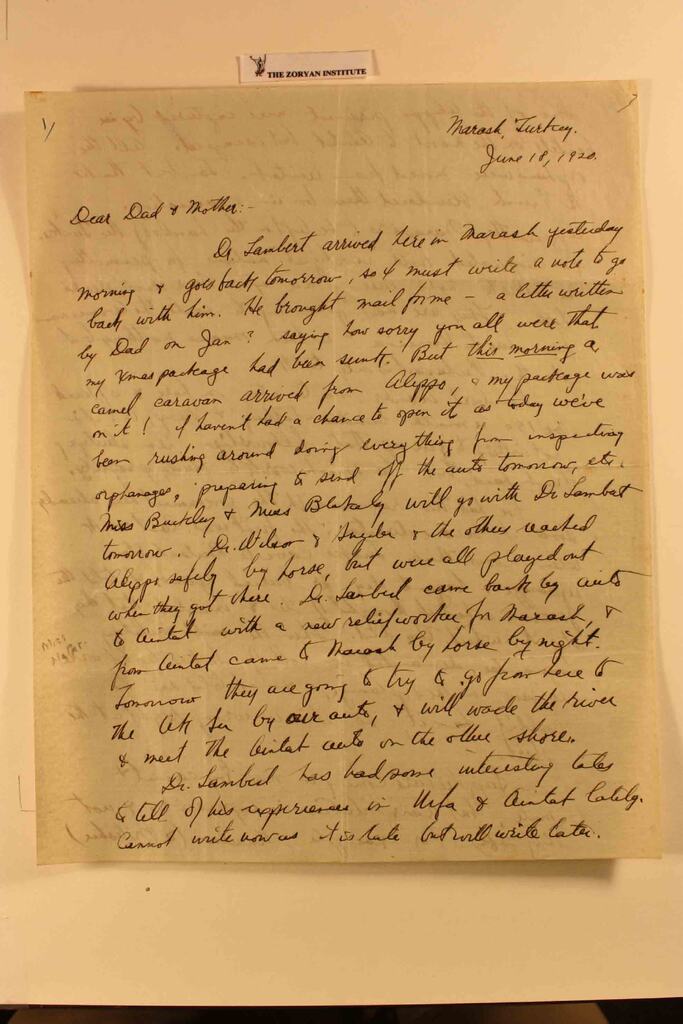 THE ZORYAN INSTITUTE
1/
Marash, Turkey.
June 18, 1920.
Dear Dad & Mother:-
Dr. Lambert arrived here in Marash yesterday
morning & goes back tomorrow, so I must write a note to go
back with him. He brought mail for me - a letter written
by Dad on Jan ? saying how sorry you all were that
my Xmas package had been sunk. But this morning a
camel caravan arrived from Aleppo, & my package was
on it! I haven't had a chance to open it as today we've
been rushing around doing everything from inspecting
orphanages, preparing to send off the auto tomorrow, etc.
Miss Buckley & Miss Blakely will go with Dr. Lambert
tomorrow. Dr. Wilson & Snyder & the others reached
Aleppo safely by horse, but were all played out
when they got there. Dr. Lambert came back by auto
to Aintab with a new relief worker for Marash, &
from Aintab came to Marash by horse by night.
Tomorrow they are going to try to go from here to
the Ak Su by our auto, & will wade the river
& meet the Aintab auto on the other shore.
Dr. Lambert has had some interesting tales
to tell of his experiences in Urfa & Aintab lately.
Cannot write now as it is late but will write later.
Miss